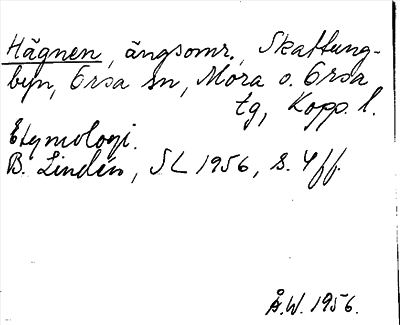 Hägnen, ängsomr., Skattung-
byn, Orsa sn, Mora o. Orsa
tg, Kopp. l.
Etymologi.
B. Lindén, SL 1956, s. 4 ff.
Å.W. 1956.